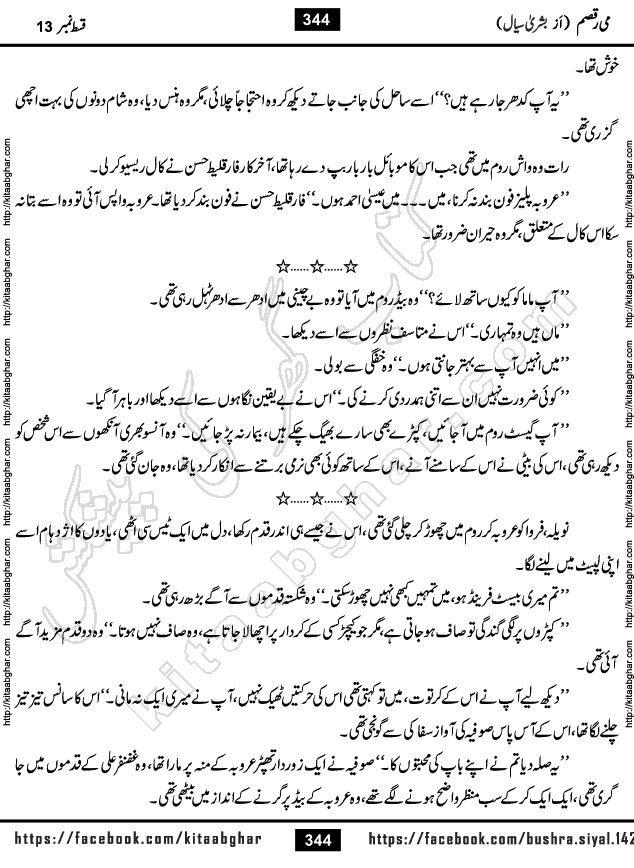 می رقصم (از بشریٰ سیال)
344
قسط نمبر 13
خوش تھا۔
’’یہ آپ کدھر جا رہے ہیں؟‘‘ اسے ساحل کی جانب جاتے دیکھ کر وہ احتجاجاً چلائی، مگر وہ ہنس دیا، وہ شام دونوں کی بہت اچھی
گزری تھی۔
رات وہ واش روم میں تھی جب اس کا موبائل بار بار بپ دے رہا تھا، آخر کار فارقلیط حسن نے کال ریسیو کر لی۔
’’عروبہ پلیز فون بند نہ کرنا، میں ۔۔۔ میں عیسیٰ احمد ہوں۔‘‘ فارقلیط حسن نے فون بند کر دیا تھا۔ عروبہ واپس آئی تو وہ اسے بتا نہ
سکا اس کال کے متعلق، مگر وہ حیران ضرور تھا۔
☆......☆......☆
’’آپ ماما کو کیوں ساتھ لائے؟‘‘ وہ بیڈ روم میں آیا تو وہ بے چینی میں ادھر سے ادھر ٹہل رہی تھی۔
’’ماں ہیں وہ تمہاری۔‘‘ اس نے متاسف نظروں سے اسے دیکھا۔
’’میں انہیں آپ سے بہتر جانتی ہوں۔‘‘ وہ خفگی سے بولی۔
’’کوئی ضرورت نہیں ان سے اتنی ہمدردی کرنے کی۔‘‘ اس نے بے یقین نگاہوں سے اسے دیکھا اور باہر آ گیا۔
’’آپ گیسٹ روم میں آ جائیں، کپڑے بھی سارے بھیگ چکے ہیں، بیمار نہ پڑ جائیں۔‘‘ وہ آنسو بھری آنکھوں سے اس شخص کو
دیکھ رہی تھی، اس کی بیٹی نے اس کے سامنے آنے، اس کے ساتھ کوئی بھی نرمی برتنے سے انکار کر دیا تھا، وہ جان گئی تھی۔
☆......☆......☆
نویلہ، فروا کو عروبہ کر روم میں چھوڑ کر چلی گئی تھی، اس نے جیسے ہی اندر قدم رکھا، دل میں ایک ٹیس سی اٹھی، یادوں کا اژدہام اسے
اپنی لپیٹ میں لینے لگا۔
’’تم میری بیسٹ فرینڈ ہو، میں تمہیں کبھی نہیں چھوڑ سکتی۔‘‘ وہ شکستہ قدموں سے آگے بڑھ رہی تھی۔
’’کپڑوں پر لگی گندگی تو صاف ہو جاتی ہے، مگر جو کیچڑ کسی کے کردار پر اچھالا جاتا ہے، وہ صاف نہیں ہوتا۔‘‘ وہ دو قدم مزید آگے
آئی تھی۔
’’دیکھ لیے آپ نے اس کے کرتوت، میں تو کہتی تھی اس کی حرکتیں ٹھیک نہیں، آپ نے میری ایک نہ مانی۔‘‘ اس کا سانس تیز تیز
چلنے لگا تھا، اس کے آس پاس صوفیہ کی آواز سفاکی سے گونجی تھی۔
’’یہ صلہ دیا تم نے اپنے باپ کی محبتوں کا۔‘‘ صوفیہ نے ایک زور دار تھپڑ عروبہ کے منہ پر مارا تھا، وہ غضنفر علی کے قدموں میں جا
گری تھی، ایک ایک کر کے سب منظر واضح ہونے لگے تھے، وہ عروبہ کے بیڈ پر گرنے کے انداز میں بیٹھی تھی۔
https://facebook.com/kitaabghar
344
https://facebook.com/bushra.siyal.142
http://kitaabghar.com http://kitaabghar.com http://kitaabghar.com http://kitaabghar.com http://kitaabghar.com http://kitaabghar.com
http://kitaabghar.com http://kitaabghar.com http://kitaabghar.com http://kitaabghar.com http://kitaabghar.com http://kitaabghar.com
کتاب گھر کی پیشکش
kitaabghar.com